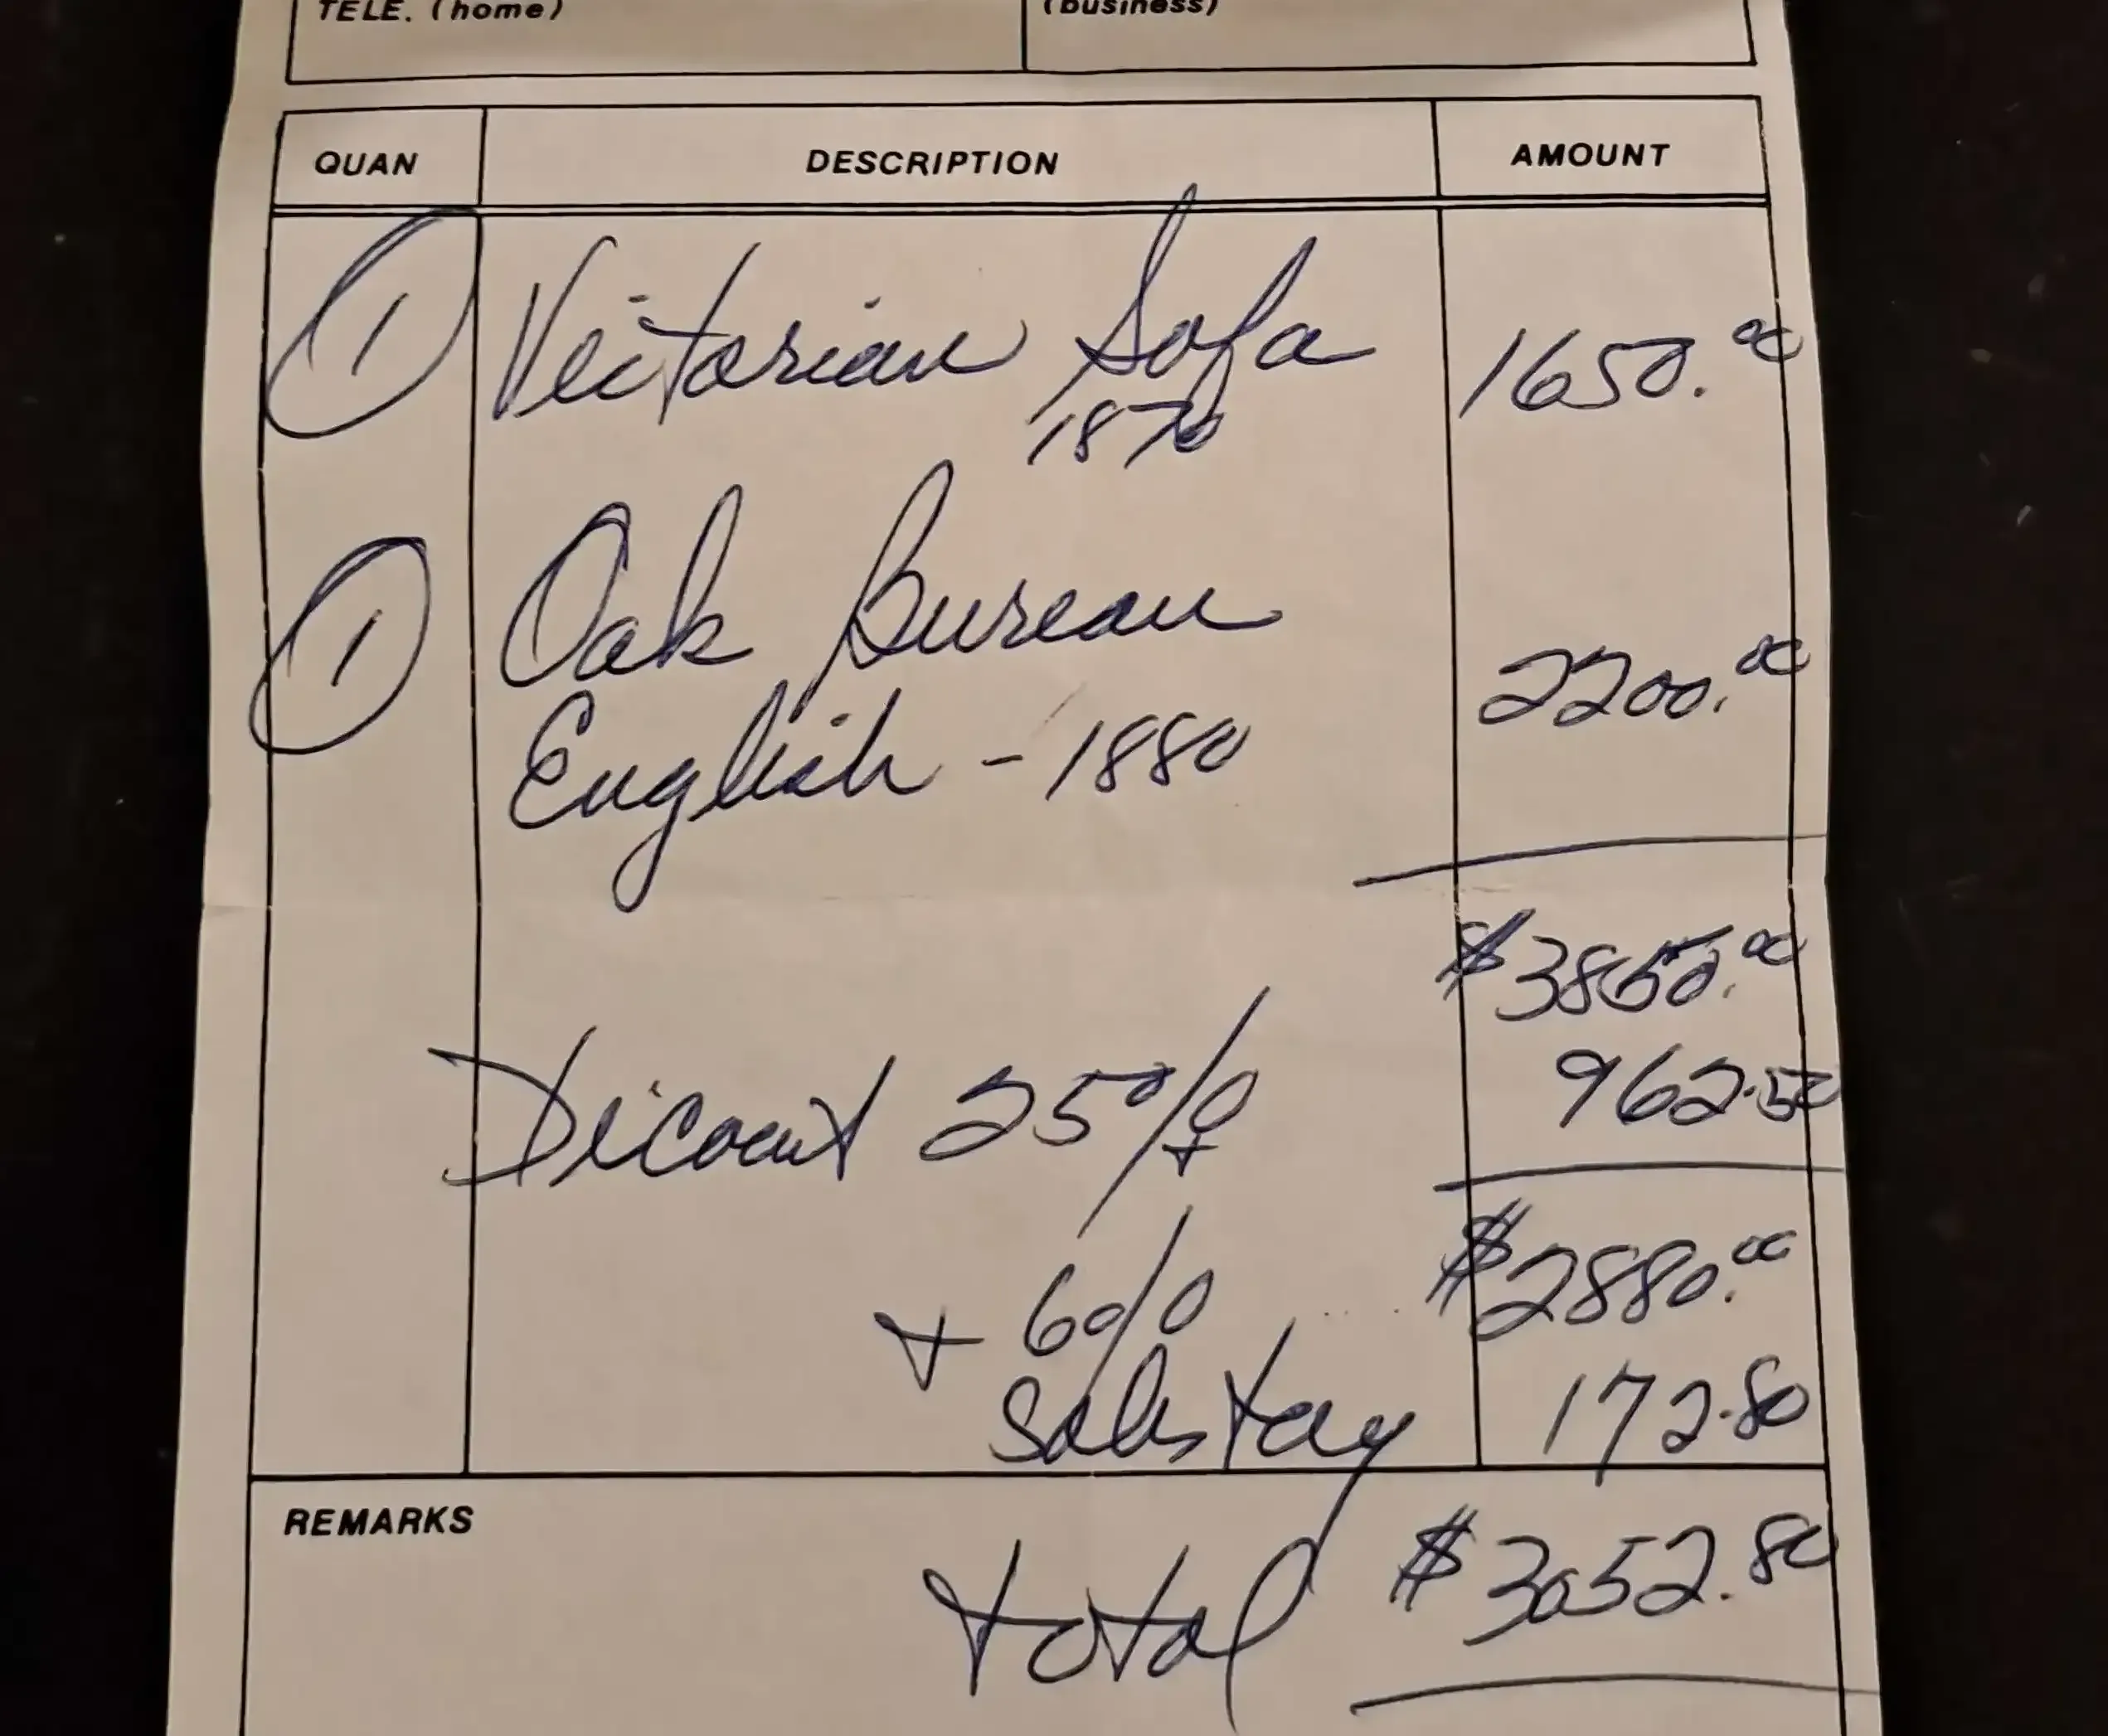 TELE. (home) (business)
QUAN DESCRIPTION AMOUNT
1 Victorian Sofa 1650.00
1870
1 Oak Bureau
English - 1880 2200.00
$3850.00
Dicount 25% 962.50
$2880.00
+ 6%
Sales tax 172.80
REMARKS
total $3052.80